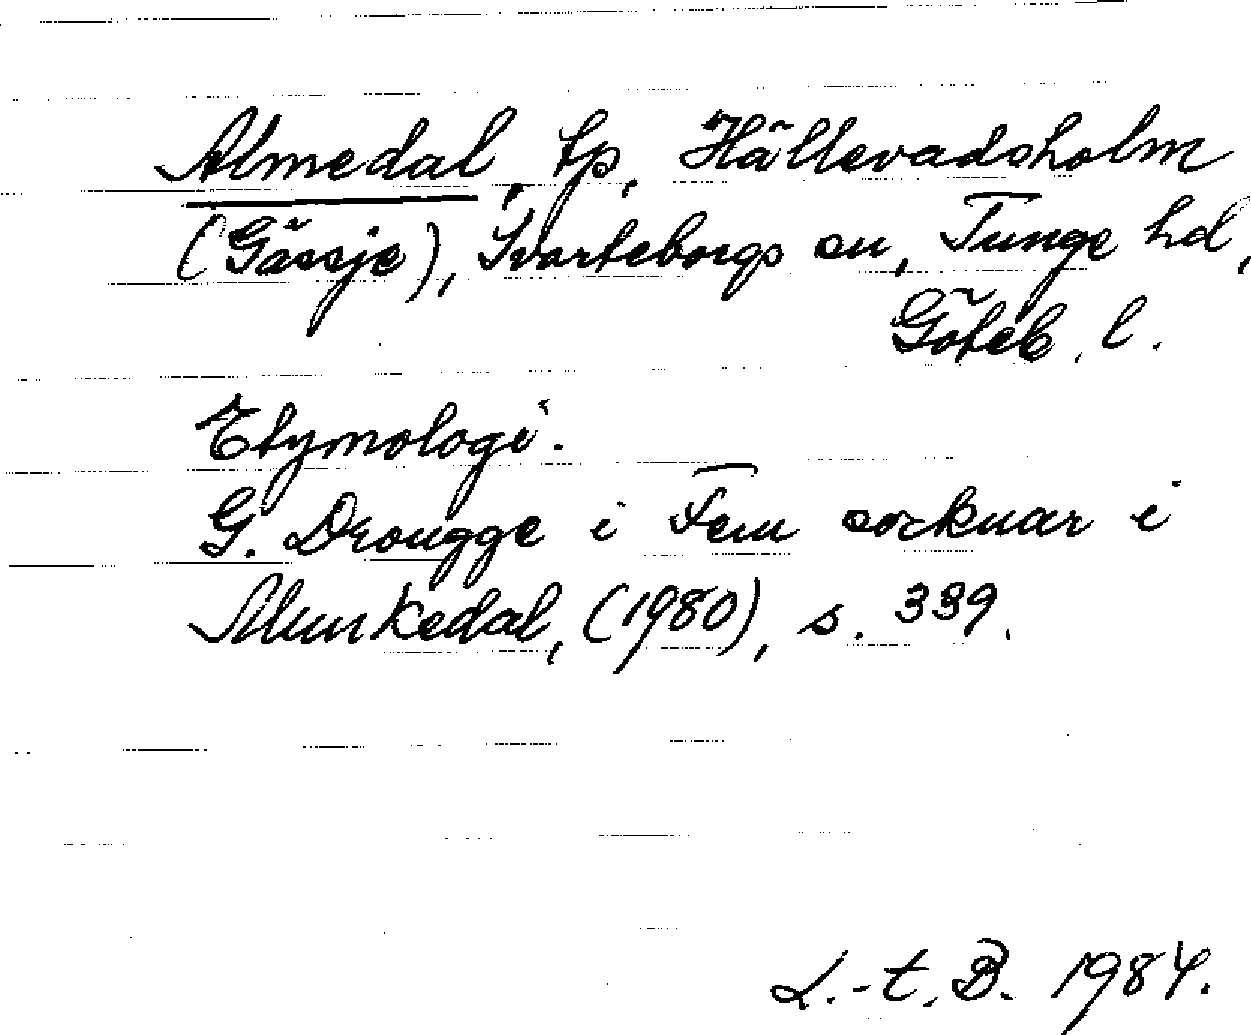 Almedal, tp, Hällevadsholm
(Gässje), Svarteborgs sn, Tunge hd,
Göteb. l.
Etymologi.
G. Drougge i Fem socknar i
Munkedal, (1980), s. 339.
L.-t. B. 1984.